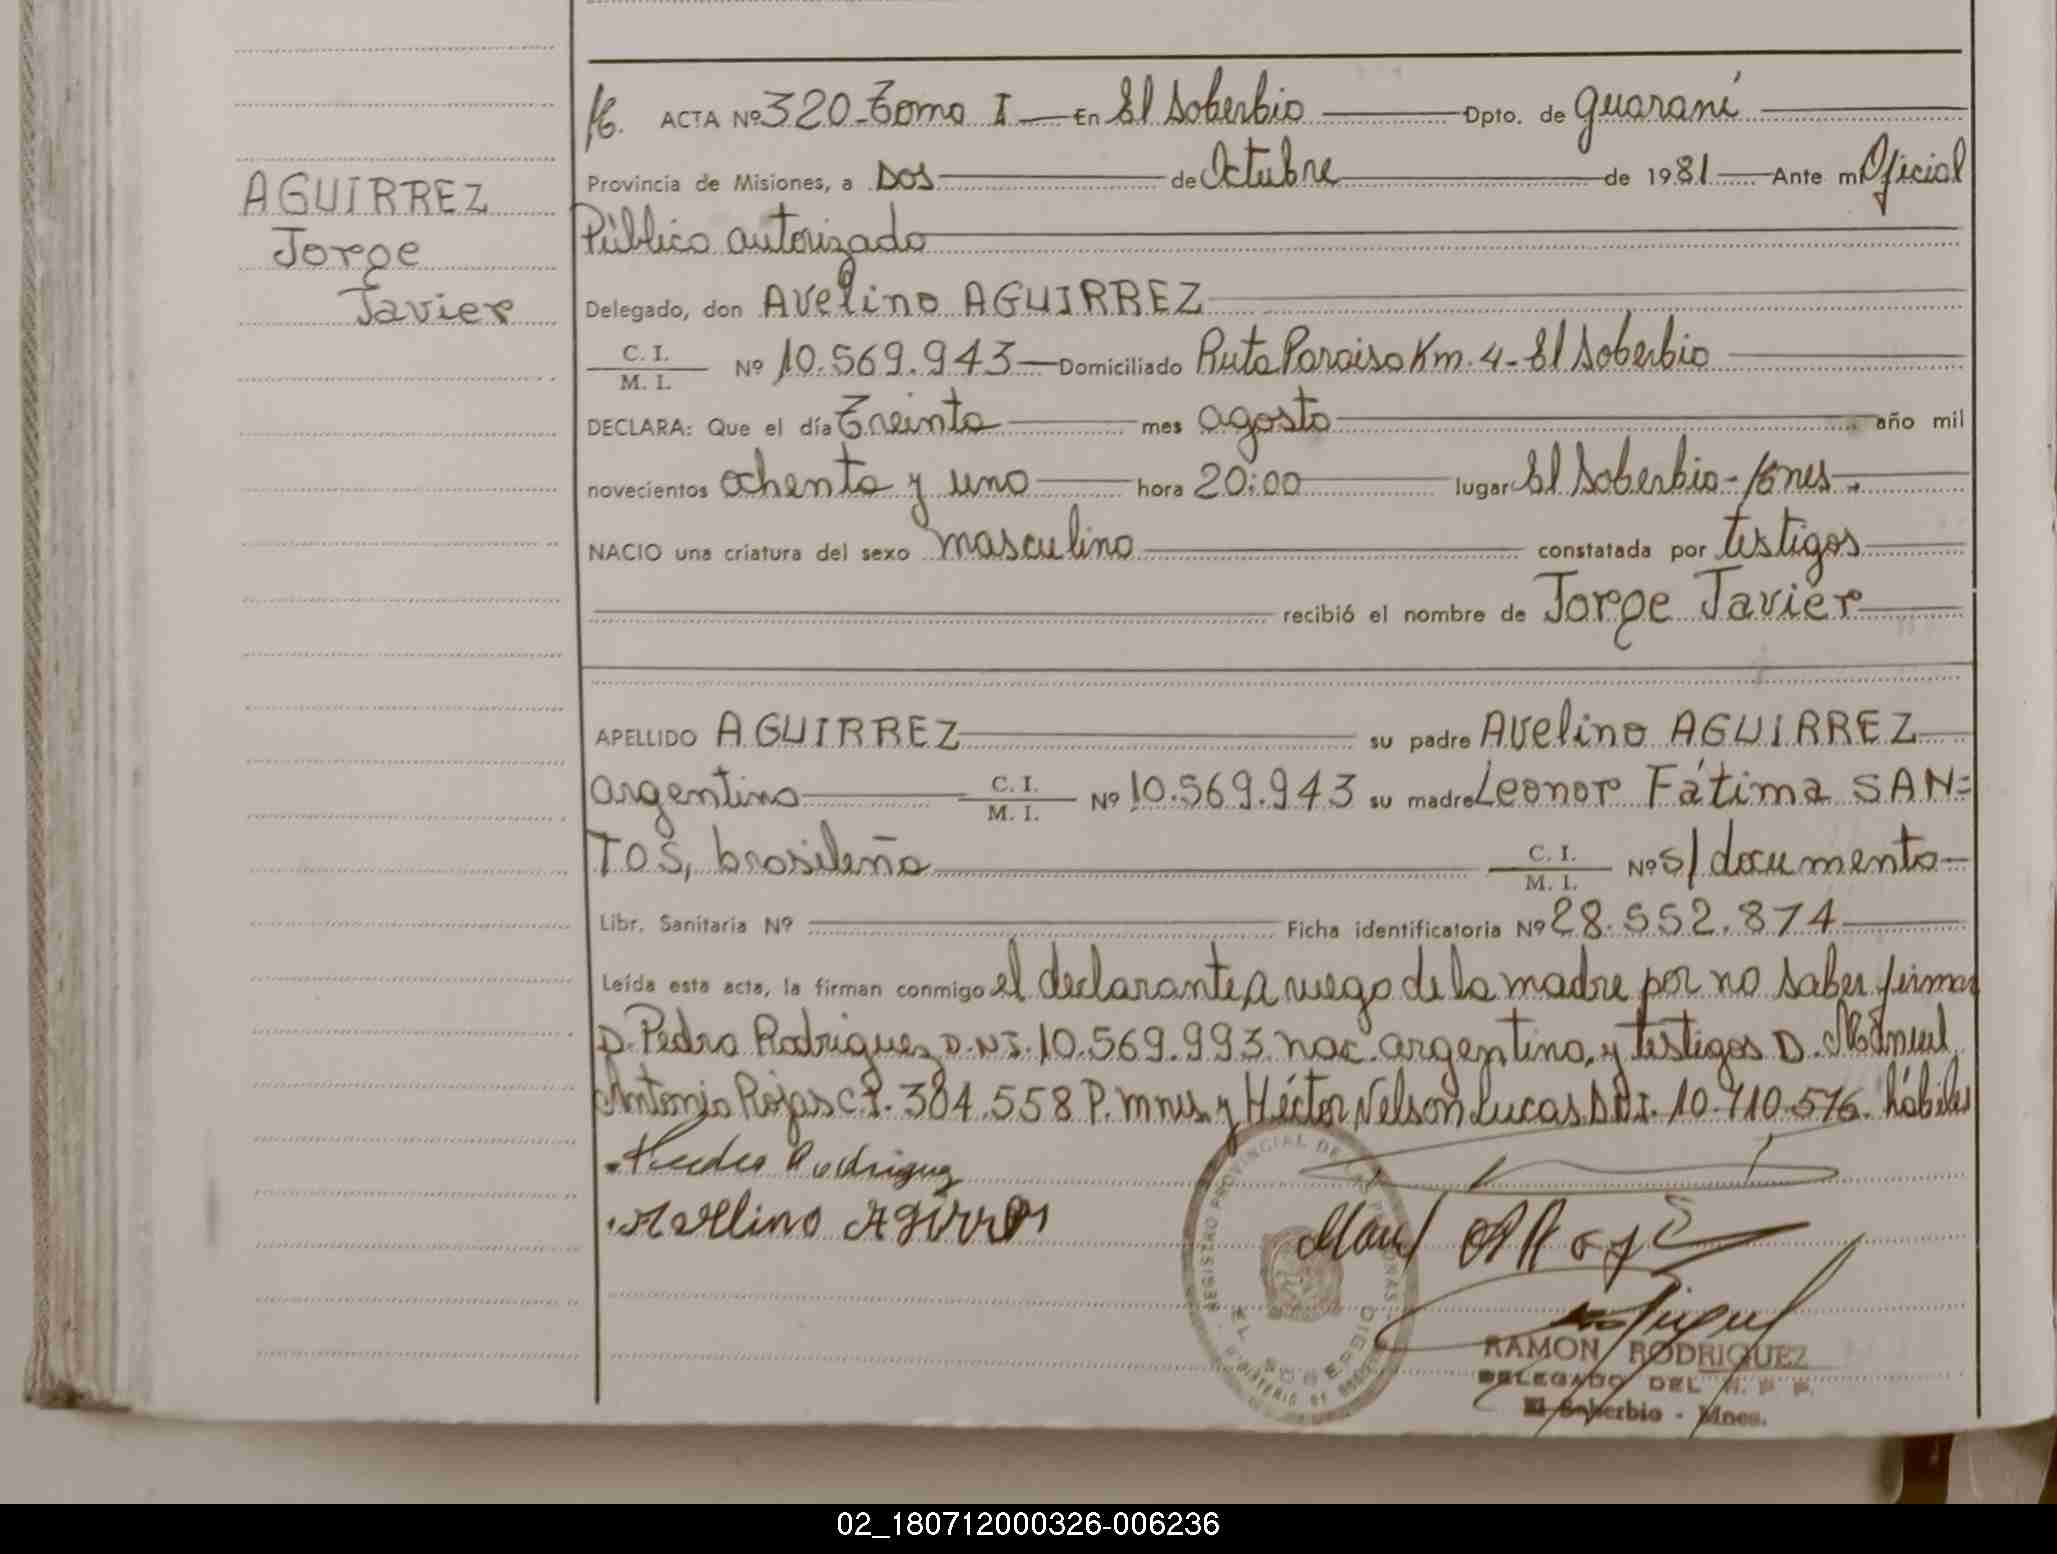 AGUIRREZ
Jorge
Javier
ACTA Nº 320 - Tomo I - En El Soberbio Dpto. de Guaraní
Provincia de Misiones, a Dos de Octubre de 1981 Ante mí Oficial
Público autorizado
Delegado, don Avelino AGUIRREZ
C. I. / M. I. Nº 10.569.943 Domiciliado Ruta Paraiso Km. 4 - El Soberbio
DECLARA: Que el día Treinta mes agosto año mil
novecientos ochenta y uno hora 20:00 lugar El Soberbio - Mnes.
NACIO una criatura del sexo masculino constatada por testigos
recibió el nombre de Jorge Javier
APELLIDO AGUIRREZ su padre Avelino AGUIRREZ
argentino C. I. / M. I. Nº 10.569.943 su madre Leonor Fátima SAN=
TOS, brasileña C. I. / M. I. Nº s/documento
Libr. Sanitaria Nº Ficha identificatoria Nº 28.552.874
Leída esta acta, la firman conmigo el declarante, a ruego de la madre por no saber firmar
D. Pedro Rodriguez D.N.I. 10.569.993 nac. argentino, y testigos D. Manuel
Antonio Rojas C.I. 384.558 P. mnes y Héctor Nelson Lucas D.N.I. 10.710.576. hábiles
Pedro Rodriguez
Avellino Agirres
REGISTRO PROVINCIAL DE LAS PERSONAS
EL SOBERBIO
RAMON RODRIGUEZ
DELEGADO DEL R. P. P.
El Soberbio - Mnes.
02_180712000326-006236